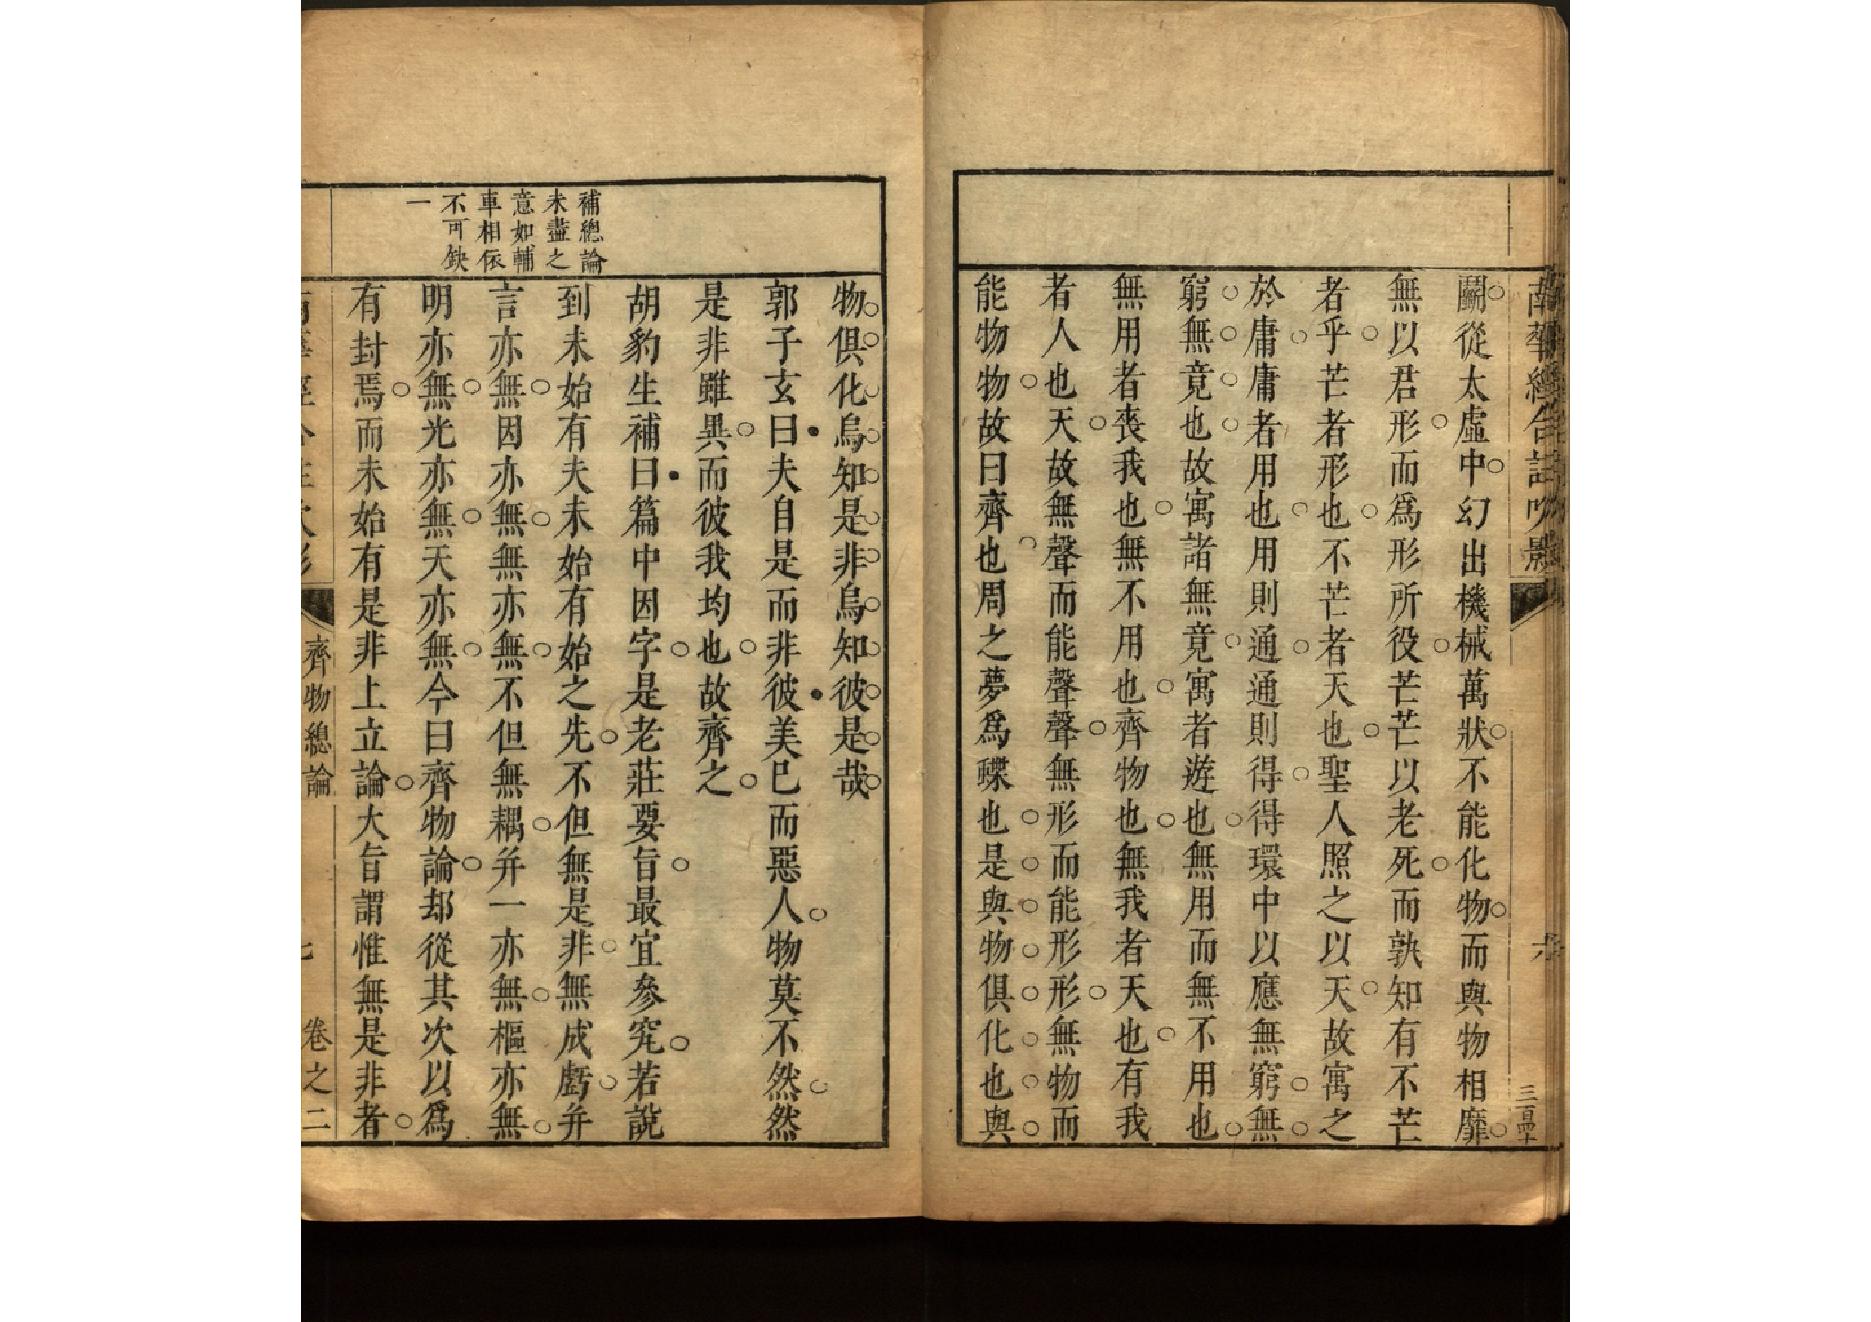 南華經合註吹影
六
三百四十
鬭從太虛中幻出機械萬狀不能化物而與物相靡
無以君形而爲形所役芒芒以老死而孰知有不芒
者乎芒者形也不芒者天也聖人照之以天故寓之
於庸庸者用也用則通通則得得環中以應無窮無
窮無竟也故寓諸無竟寓者遊也無用而無不用也
無用者喪我也無不用也齊物也無我者天也有我
者人也天故無聲而能聲聲無形而能形形無物而
能物物故曰齊也周之夢爲蝶也是與物俱化也與
物俱化烏知是非烏知彼是哉
郭子玄曰夫自是而非彼美已而惡人物莫不然然
是非雖異而彼我均也故齊之
補總論
未盡之
意如輔
車相依
不可缺
一
胡豹生補曰篇中因字是老莊要旨最宜參究若說
到未始有夫未始有始之先不但無是非無成虧并
言亦無因亦無無亦無不但無耦并一亦無樞亦無
明亦無光亦無天亦無今曰齊物論却從其次以爲
有封焉而未始有是非上立論大旨謂惟無是非者
齊物總論
七
卷之二